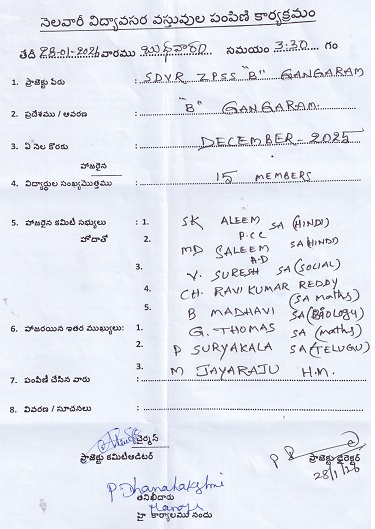 నెలవారీ విద్యావసర వస్తువుల పంపిణి కార్యక్రమం
తేది 28-01-2026 వారము బుధవారం సమయం 3:30 గం
1. ప్రాజెక్టు పేరు : SDVR ZPSS "B" GANGARAM
2. ప్రదేశము / ఆవరణ : "B" GANGARAM.
3. ఏ నెల కొరకు : DECEMBER-2025
హాజరైన
4. విద్యార్థుల సంఖ్యమొత్తము : 15 MEMBERS
5. హాజరైన కమిటి సభ్యులు : 1. SK ALEEM SA (HINDI)
హోదాతో 2. P.C.C MD SALEEM SA HINDI)
3. A.D V. SURESH SA (SOCIAL)
4. CH. RAVI KUMAR REDDY (SA maths)
5. B MADHAVI SA (BIOLOGY)
6. హాజరయిన ఇతర ముఖ్యులు: 1. G. THOMAS SA (maths)
2. P SURYAKALA SA (TELUGU)
3. M JAYARAJU H.M.
7. పంపిణి చేసిన వారు :
8. వివరణ / సూచనలు :
చైర్మన్
ప్రాజెక్టు కమిటిఆడిటర్
ప్రాజెక్టు డైరెక్టర్
28/1/26
P. Dhanalakshmi
తనిఖీదారు
హై కార్యాలము నందు